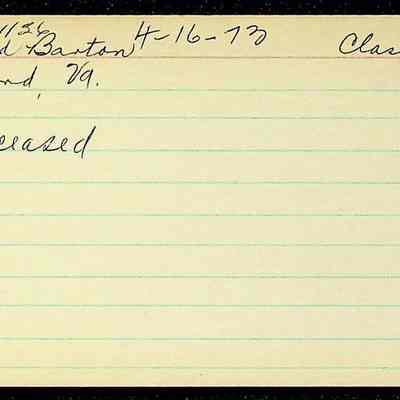 1136
d Barton 4-16-73 Clas
nd, Va.
ceased